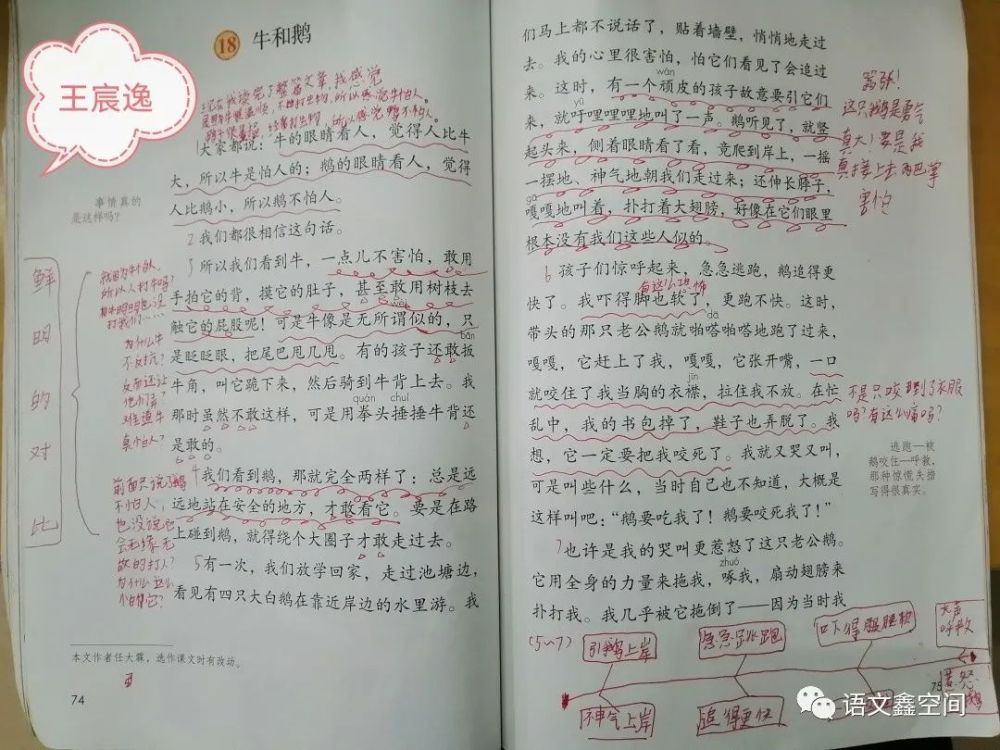 王宸逸
18 牛和鹅
大家都说：牛的眼睛看人，觉得人比牛
大，所以牛是怕人的；鹅的眼睛看人，觉得
人比鹅小，所以鹅不怕人。
事情真的
是这样吗？
2我们都很相信这句话。
3所以我们看到牛，一点儿不害怕，敢用
手拍它的背，摸它的肚子，甚至敢用树枝去
触它的屁股呢！可是牛像是无所谓似的，只
bān
是眨眨眼，把尾巴甩几甩。有的孩子还敢扳
牛角，叫它跪下来，然后骑到牛背上去。我
quán chuí
那时虽然不敢这样，可是用拳头捶捶牛背还
是敢的。
4我们看到鹅，那就完全两样了：总是远
远地站在安全的地方，才敢看它。要是在路
上碰到鹅，就得绕个大圈子才敢走过去。
5有一次，我们放学回家，走过池塘边，
看见有四只大白鹅在靠近岸边的水里游。我
鲜明的对比
为什么牛
不反抗？
反而还让
他们骑？
难道牛
真怕人？
本文作者任大霖，选作课文时有改动。
74
们马上都不说话了，贴着墙壁，悄悄地走过
去。我的心里很害怕，怕它们看见了会追过
wán
来。这时，有一个顽皮的孩子故意要引它们
yū
来，就吁哩哩哩地叫了一声。鹅听见了，就竖
起头来，侧着眼睛看了看，竟爬到岸上，一摇
一摆地、神气地朝我们走过来；还伸长脖子，
gā
嘎嘎地叫着，扑打着大翅膀，好像在它们眼里
根本没有我们这些人似的。
嚣张！
这只鹅是勇气
真大！要是我
真接上去两巴掌
害怕
6孩子们惊呼起来，急急逃跑，鹅追得更
有这么恐怖
快了。我吓得脚也软了，更跑不快。这时，
dā
带头的那只老公鹅就啪嗒啪嗒地跑了过来，
嘎嘎，它赶上了我，嘎嘎，它张开嘴，一口
jīn
就咬住了我当胸的衣襟，拉住我不放。在忙
乱中，我的书包掉了，鞋子也弄脱了。我
想，它一定要把我咬死了。我就又哭又叫，
可是叫些什么，当时自己也不知道，大概是
这样叫吧：“鹅要吃我了！鹅要咬死我了！”
不是只咬到了衣服
吗？有这么痛吗？
逃跑—被
鹅咬住—呼救，
那种惊慌失措
写得很真实。
7也许是我的哭叫更惹怒了这只老公鹅。
zhuó
它用全身的力量来拖我，啄我，扇动翅膀来
扑打我。我几乎被它拖倒了——因为当时我
(5~7)
引鹅上岸
急急逃跑
吓得腿脚软
大声
呼救
神气上岸
追得更快
75
语文鑫空间